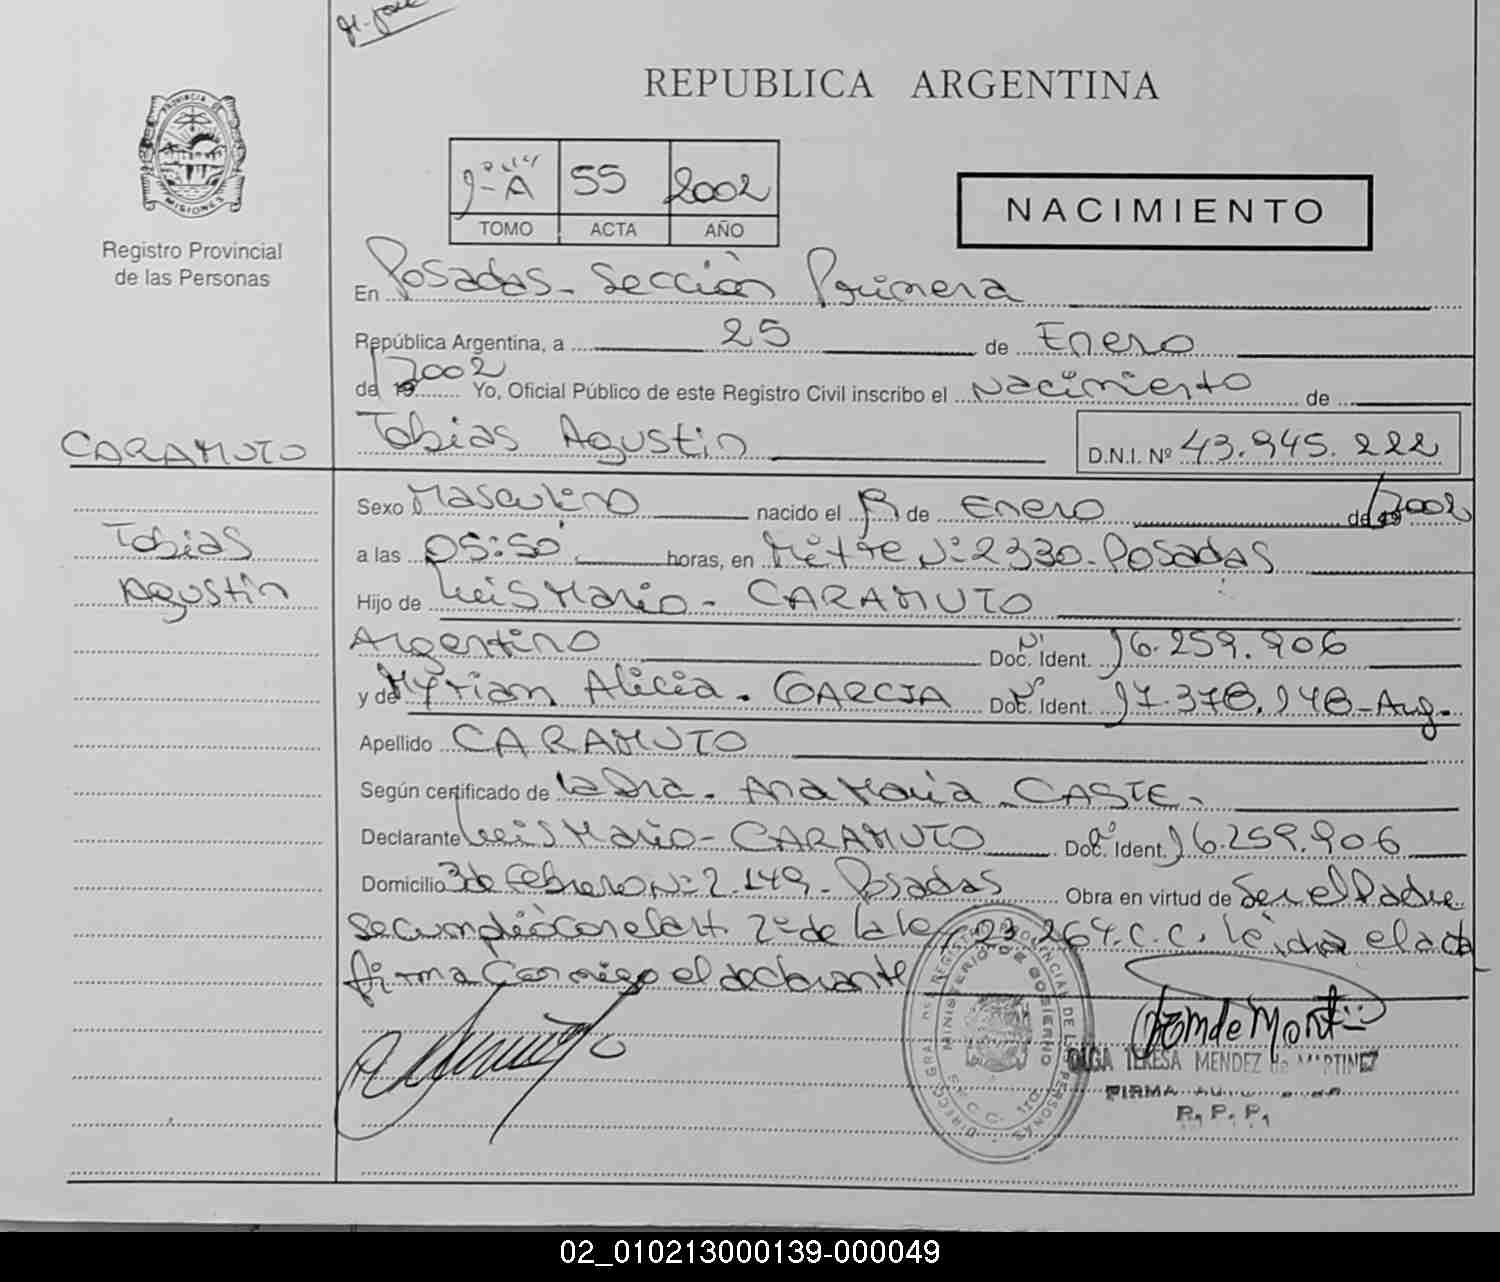 REPUBLICA ARGENTINA
PROVINCIA DE MISIONES
Registro Provincial
de las Personas
55 2002
TOMO ACTA AÑO
NACIMIENTO
En Posadas - Sección Primera
República Argentina, a 25 de Enero
de 19 2002 Yo, Oficial Público de este Registro Civil inscribo el Nacimiento de
CARAMUTO
Tobias Agustin
D.N.I. Nº 43.945.222
Tobias
Agustin
Sexo Masculino nacido el de Enero de 19 2002
a las 05:50 horas, en Mitre Nº 2330 - Posadas
Hijo de Luis Mario - CARAMUTO
Argentino Nº Doc. Ident. 16.259.906
y de Myrian Alicia - GARCIA Nº Doc. Ident. 17.378.148 - Arg.
Apellido CARAMUTO
Según certificado de la Dra. Ana Maria CASTE -
Declarante Luis Mario - CARAMUTO Nº Doc. Ident. 16.259.906
Domicilio 3 de Febrero Nº 2.149 - Posadas Obra en virtud de Ser el Padre
Se cumplió con el art. 2º de la ley 23.264. C.C. leida el acta
firma Conmigo el declarante
OLGA TERESA MENDEZ de MARTINEZ
FIRMA
R. P. P.
02_010213000139-000049